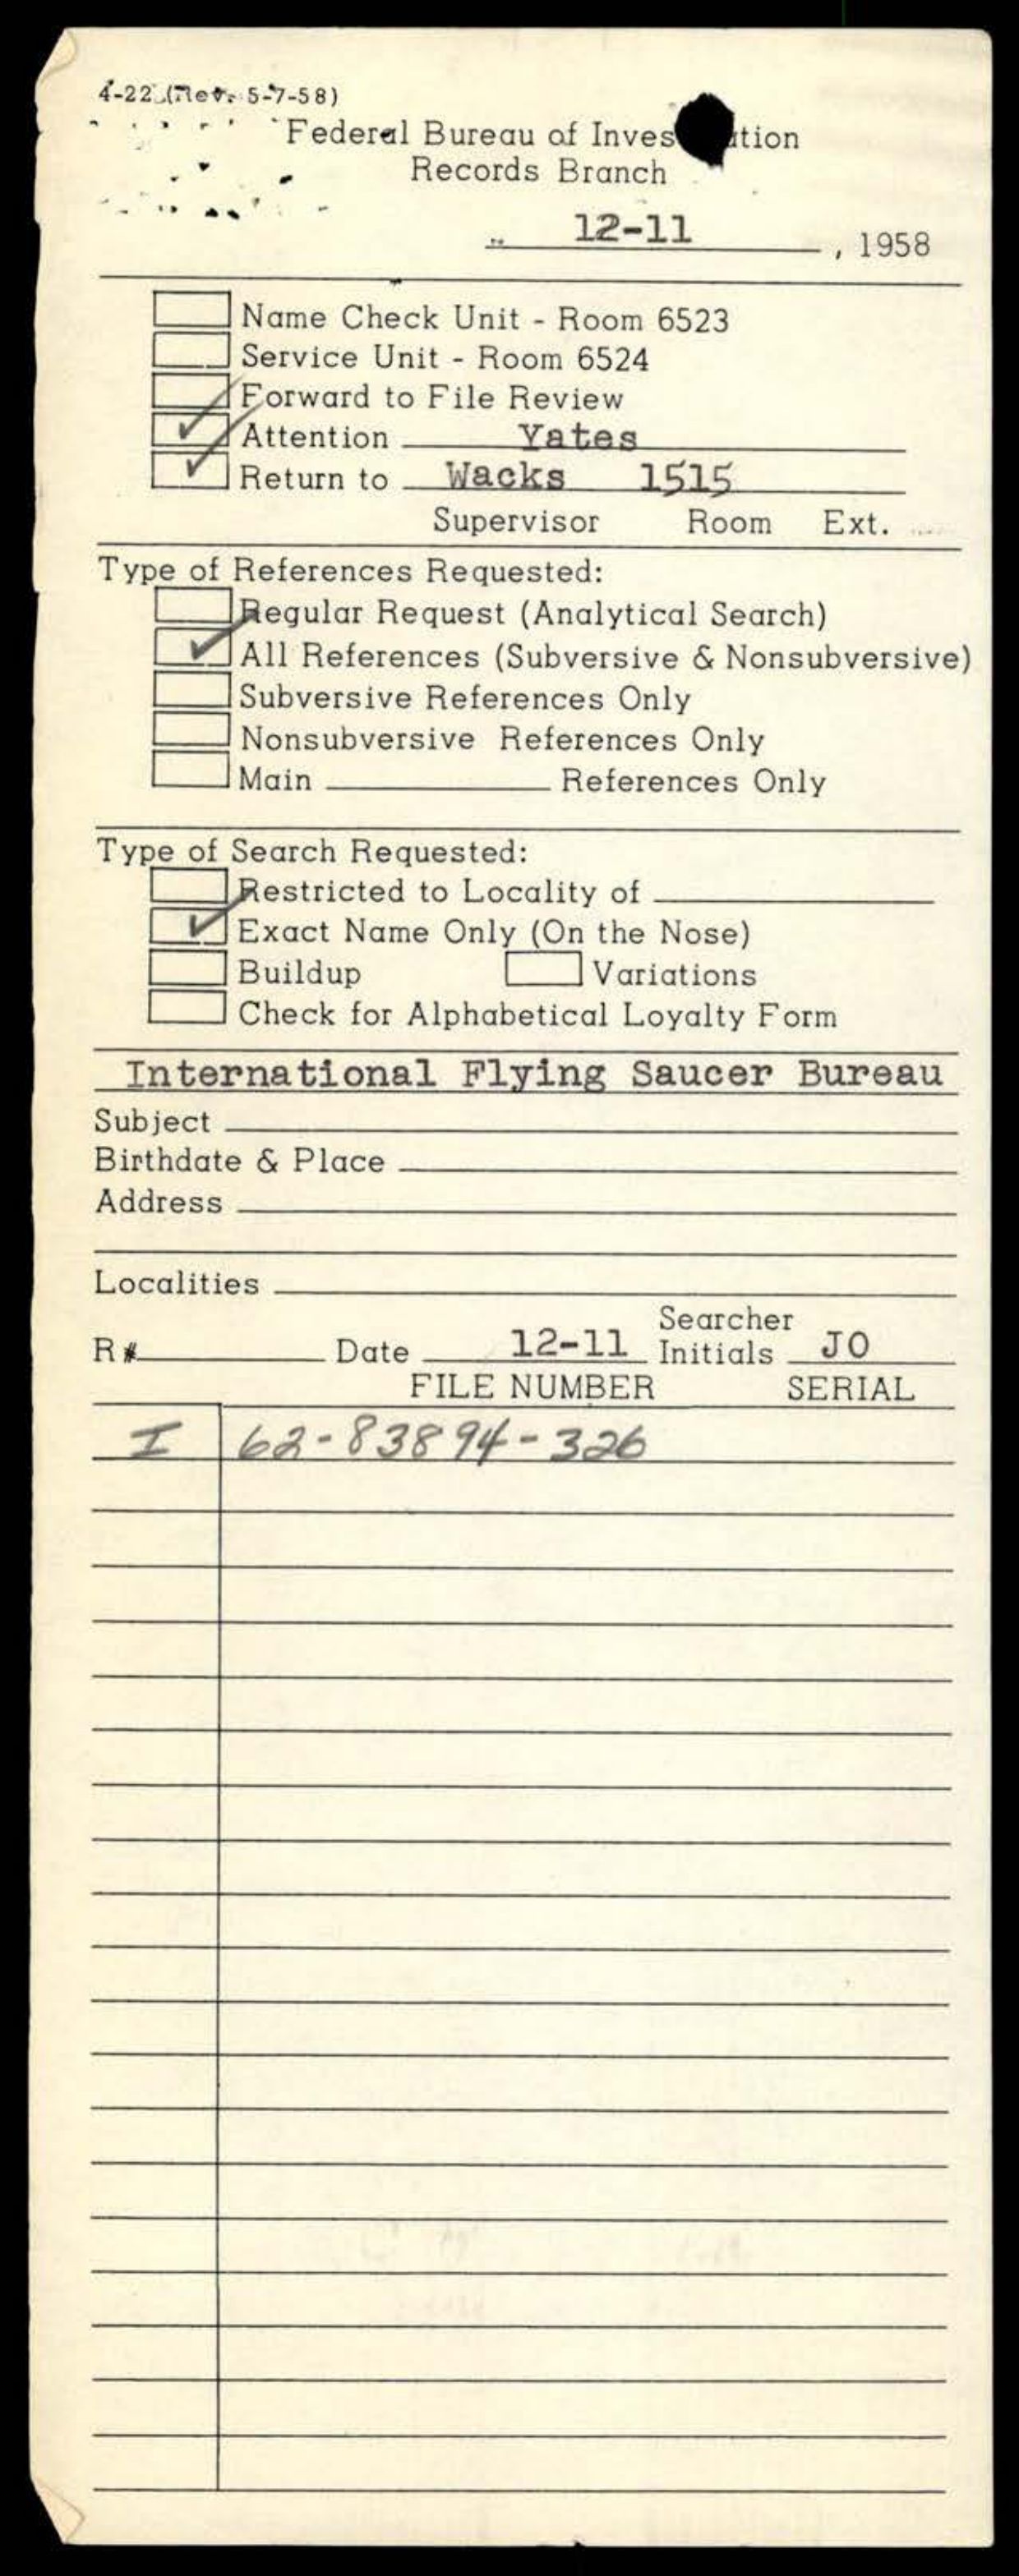 4-22 (Rev. 5-7-58)
Federal Bureau of Inves tion
Records Branch
12-11 , 1958
Name Check Unit - Room 6523
Service Unit - Room 6524
Forward to File Review
Attention Yates
Return to Wacks 1515
Supervisor Room Ext.
Type of References Requested:
Regular Request (Analytical Search)
All References (Subversive & Nonsubversive)
Subversive References Only
Nonsubversive References Only
Main References Only
Type of Search Requested:
Restricted to Locality of
Exact Name Only (On the Nose)
Buildup Variations
Check for Alphabetical Loyalty Form
International Flying Saucer Bureau
Subject
Birthdate & Place
Address
Localities
Searcher
R# Date 12-11 Initials JO
FILE NUMBER SERIAL
I 62-83894-326